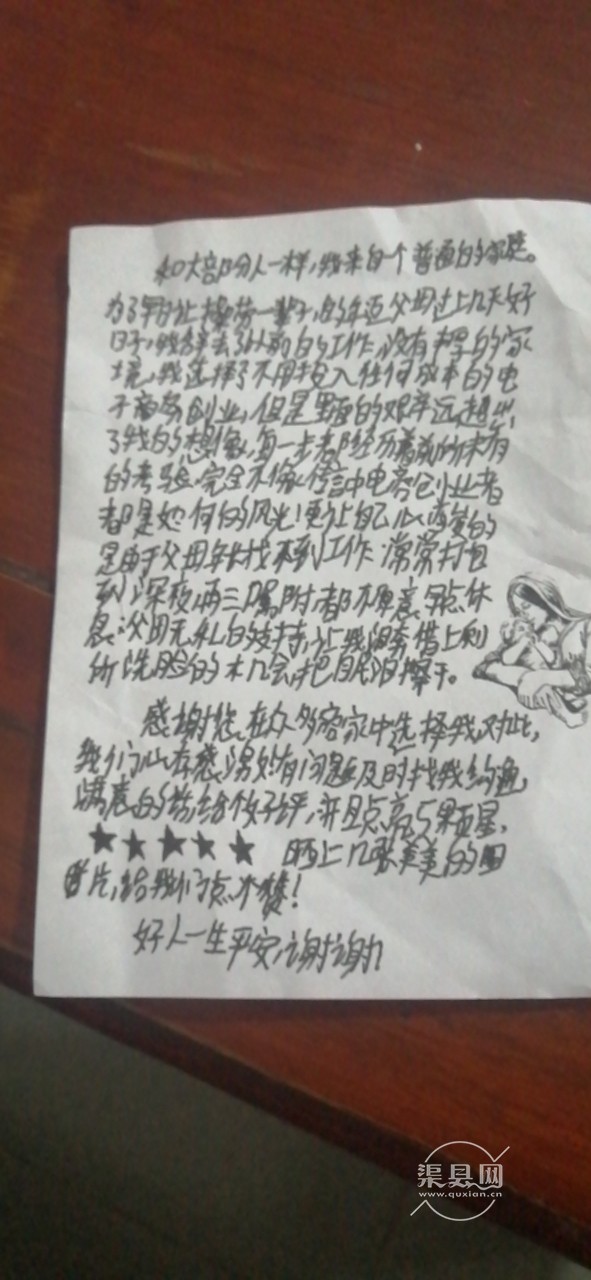 和大部分人一样,我来自一个普通的家庭。
为了早日让操劳一辈子,的年迈父母过上几天好
日子,我辞去了以前的工作,没有丰厚的家
境,我选择了不用投入任何成本的电
子商务创业,但是里面的艰辛远超出
了我的想像,每一步都经历着前所未有
的考验.完全不像传言中电商创业者
都是如何的风光!更让自己心疼的
是由于父母年纪找不到工作常常打包
到深夜两三
都不愿意
休
息,父母无私的支持,让我
洗脸的机会把眼泪擦干。
感谢您在众多客家中选择我,对此,
我们心存感
有问题及时找我沟通,
满意的
给个好评,并且点亮5颗星,
★★★★★ 晒上几张美美的图
片,给我们点个赞!
好人一生平安,谢谢
渠县网
www.quxian.cn